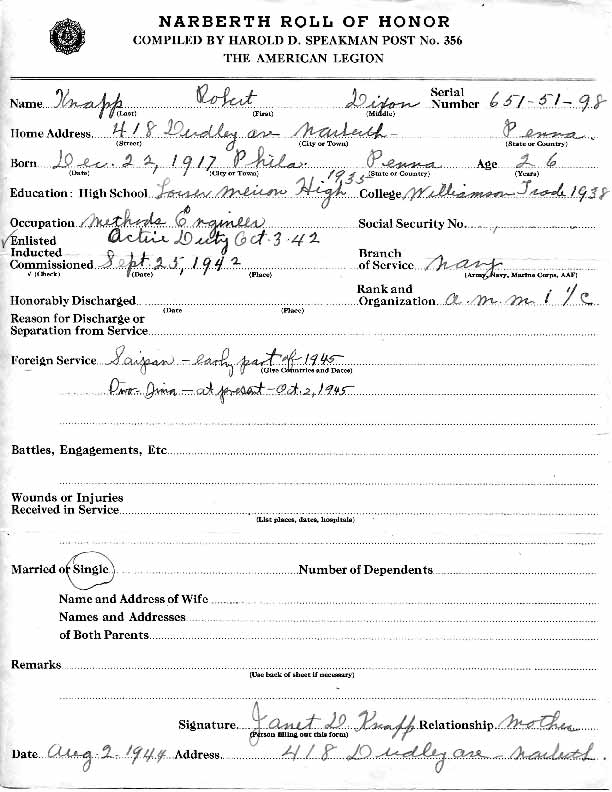 NARBERTH ROLL OF HONOR
COMPILED BY HAROLD D. SPEAKMAN POST No. 356
THE AMERICAN LEGION
Name Knapp Robert Dixon Serial Number 651-51-98
(Last) (First) (Middle)
Home Address 418 Dudley ave Narberth Penna
(Street) (City or Town) (State or Country)
Born Dec. 22, 1917 Phila. Penna Age 26
(Date) (City or Town) (State or Country) (Years)
Education: High School Lower Merion High 1935 College Williamson Trade 1938
Occupation Methods Engineer Social Security No.
✓ Enlisted Active Duty Oct. 3-42
Inducted Branch
Commissioned Sept 25, 1942 of Service Navy
√ (Check) (Date) (Place) (Army, Navy, Marine Corps, AAF)
Rank and
Honorably Discharged Organization a.m.m 1/c
(Date (Place)
Reason for Discharge or
Separation from Service
Foreign Service Saipan - early part of 1945
(Give Countries and Dates)
Iwo-Jima - at present - Oct. 2, 1945
Battles, Engagements, Etc
Wounds or Injuries
Received in Service
(List places, dates, hospitals)
Married or Single Number of Dependents
Name and Address of Wife
Names and Addresses
of Both Parents
Remarks
(Use back of sheet if necessary)
Signature Janet D Knapp Relationship Mother
(Person filling out this form)
Date Aug. 2. 1944 Address 418 Dudley ave - Narberth.